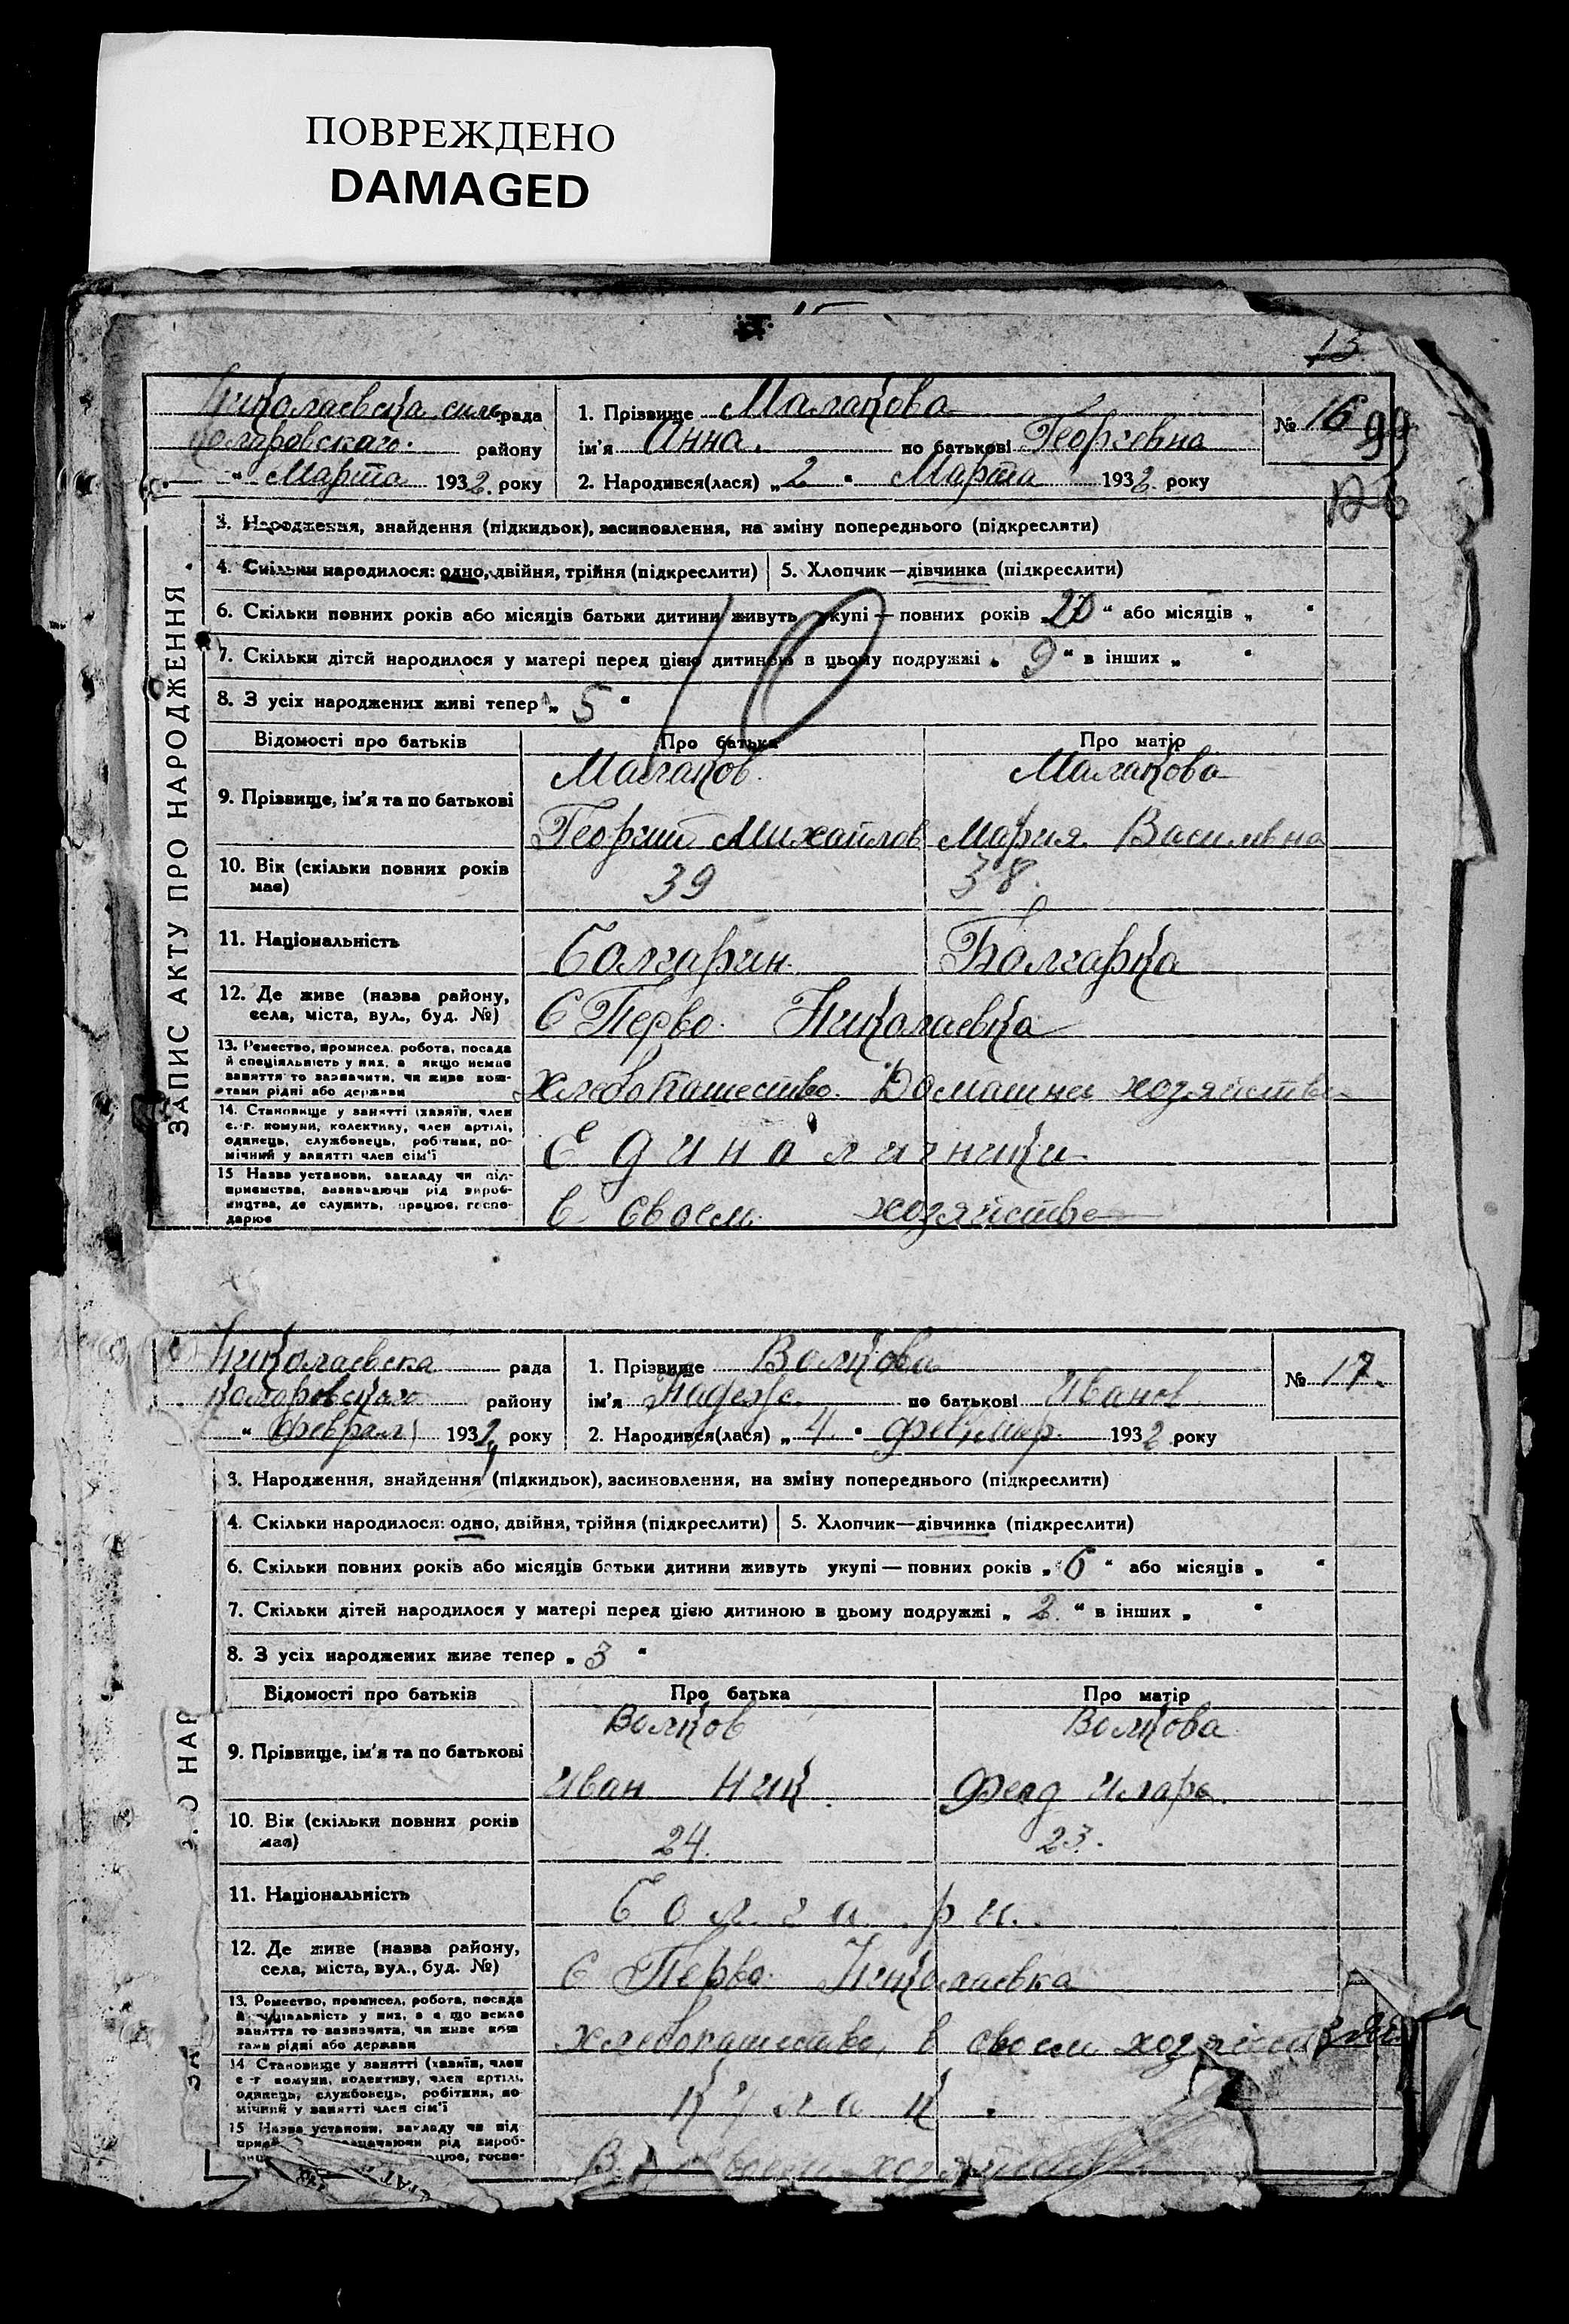 ПОВРЕЖДЕНО
DAMAGED
13
Николаевска сил рада
коларовскаго району
" Марта 1932 року
1. Прізвище Малакова
ім'я Анна. по батькові Георгевна
2. Народився(лася) „2" Марта 1932 року
№ 16
99
3. Народження, знайдення (підкидьок), засиновлення, на зміну попереднього (підкреслити)
4. Скільки народилося: одно, двійня, трійня (підкреслити)
5. Хлопчик—дівчинка (підкреслити)
6. Скільки повних років або місяців батьки дитини живуть укупі — повних років 20 " або місяців „ "
7. Скільки дітей народилося у матері перед цією дитиною в цьому подружжі „ 9 " в інших „ "
8. З усіх народжених живі тепер „ 5 "
10
ЗАПИС АКТУ ПРО НАРОДЖЕННЯ
Відомості про батьків
Про батька
Про матір
9. Прізвище, ім'я та по батькові
Малаков
Георгий Михайлов
Малакова
Мария Васильвна
10. Вік (скільки повних років має)
39
38
11. Національність
болгарин
Болгарка
12. Де живе (назва району,
села, міста, вул., буд. №)
С Перво Николаевка
13. Ремество, промисел, робота, посада
й спеціяльність у них, а якщо немає
заняття то зазначити, чи живе кош-
тами рідні або держави
хлебопашество Домашнеє хозяйство
14. Становище у занятті (хазяїн, член
с.-г. комуни, колективу, член артілі,
одинець, службовець, робітник, по-
мічний у занятті член сім'ї
Единаличники
15 Назва установи, закладу чи під-
приємства, зазначаючи рід вироб-
ництва, де служить, працює, госпо-
дарює
в своем хозяйстве
Николаевска рада
коларовскаго району
" Феврал 1932 року
1. Прізвище Волкова
ім'я Надеж. по батькові Иванов
2. Народився(лася) „ 4 " 1932 року
№ 17.
3. Народження, знайдення (підкидьок), засиновлення, на зміну попереднього (підкреслити)
4. Скільки народилося: одно, двійня, трійня (підкреслити)
5. Хлопчик—дівчинка (підкреслити)
6. Скільки повних років або місяців батьки дитини живуть укупі — повних років „ 6 " або місяців „ "
7. Скільки дітей народилося у матері перед цією дитиною в цьому подружжі „ 2. " в інших „ "
8. З усіх народжених живе тепер „ 3 "
О НАР
Відомості про батьків
Про батька
Про матір
9. Прізвище, ім'я та по батькові
Волков
Иван Ник.
Волкова
Феод Илар.
10. Вік (скільки повних років має)
24.
23.
11. Національність
болгари.
12. Де живе (назва району,
села, міста, вул., буд. №)
С Перво Николаевка
13. Ремество, промисел, робота, посада
й спеціяльність у них, а якщо немає
заняття то зазначити, чи живе кош-
тами рідні або держави
хлебопашество, в своем
14 Становище у занятті (хазяїн, член
с-г комуни, колективу, член артілі,
одинець, службовець, робітник, по-
мічний у занятті член сім'ї
кулак.
15 Назва установи, закладу чи під-
рід вироб-
госпо-
В своем хозяйстве